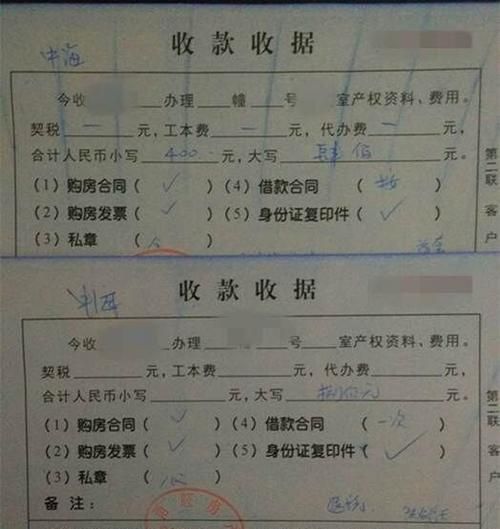 中海
收款收据
今收 办理 幢 号 室产权资料、费用。
契税 一 元,工本费 一 元,代办费 一 元,
合计人民币小写 400 元,大写 肆佰
(1)购房合同( ✓ ) (4)借款合同( )
(2)购房发票( ✓ ) (5)身份证复印件( ✓ )
(3)私章( )
第二联 客户
收款收据
今收 办理 幢 号 室产权资料、费用。
契税 元,工本费 元,代办费 元,
合计人民币小写 元,大写
(1)购房合同( ✓ ) (4)借款合同( 一次 )
(2)购房发票( ✓ ) (5)身份证复印件( ✓ )
(3)私章( )
备注:
第二联 客户